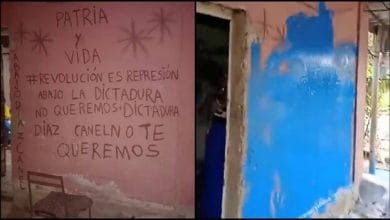 PATRIA
Y
VIDA
#REVOLUCIÓN ES REPRESIÓN
ABAJO LA DICTADURA
NO QUEREMOS+DICTADURA
DIAZ CANELNO TE
QUEREMOS